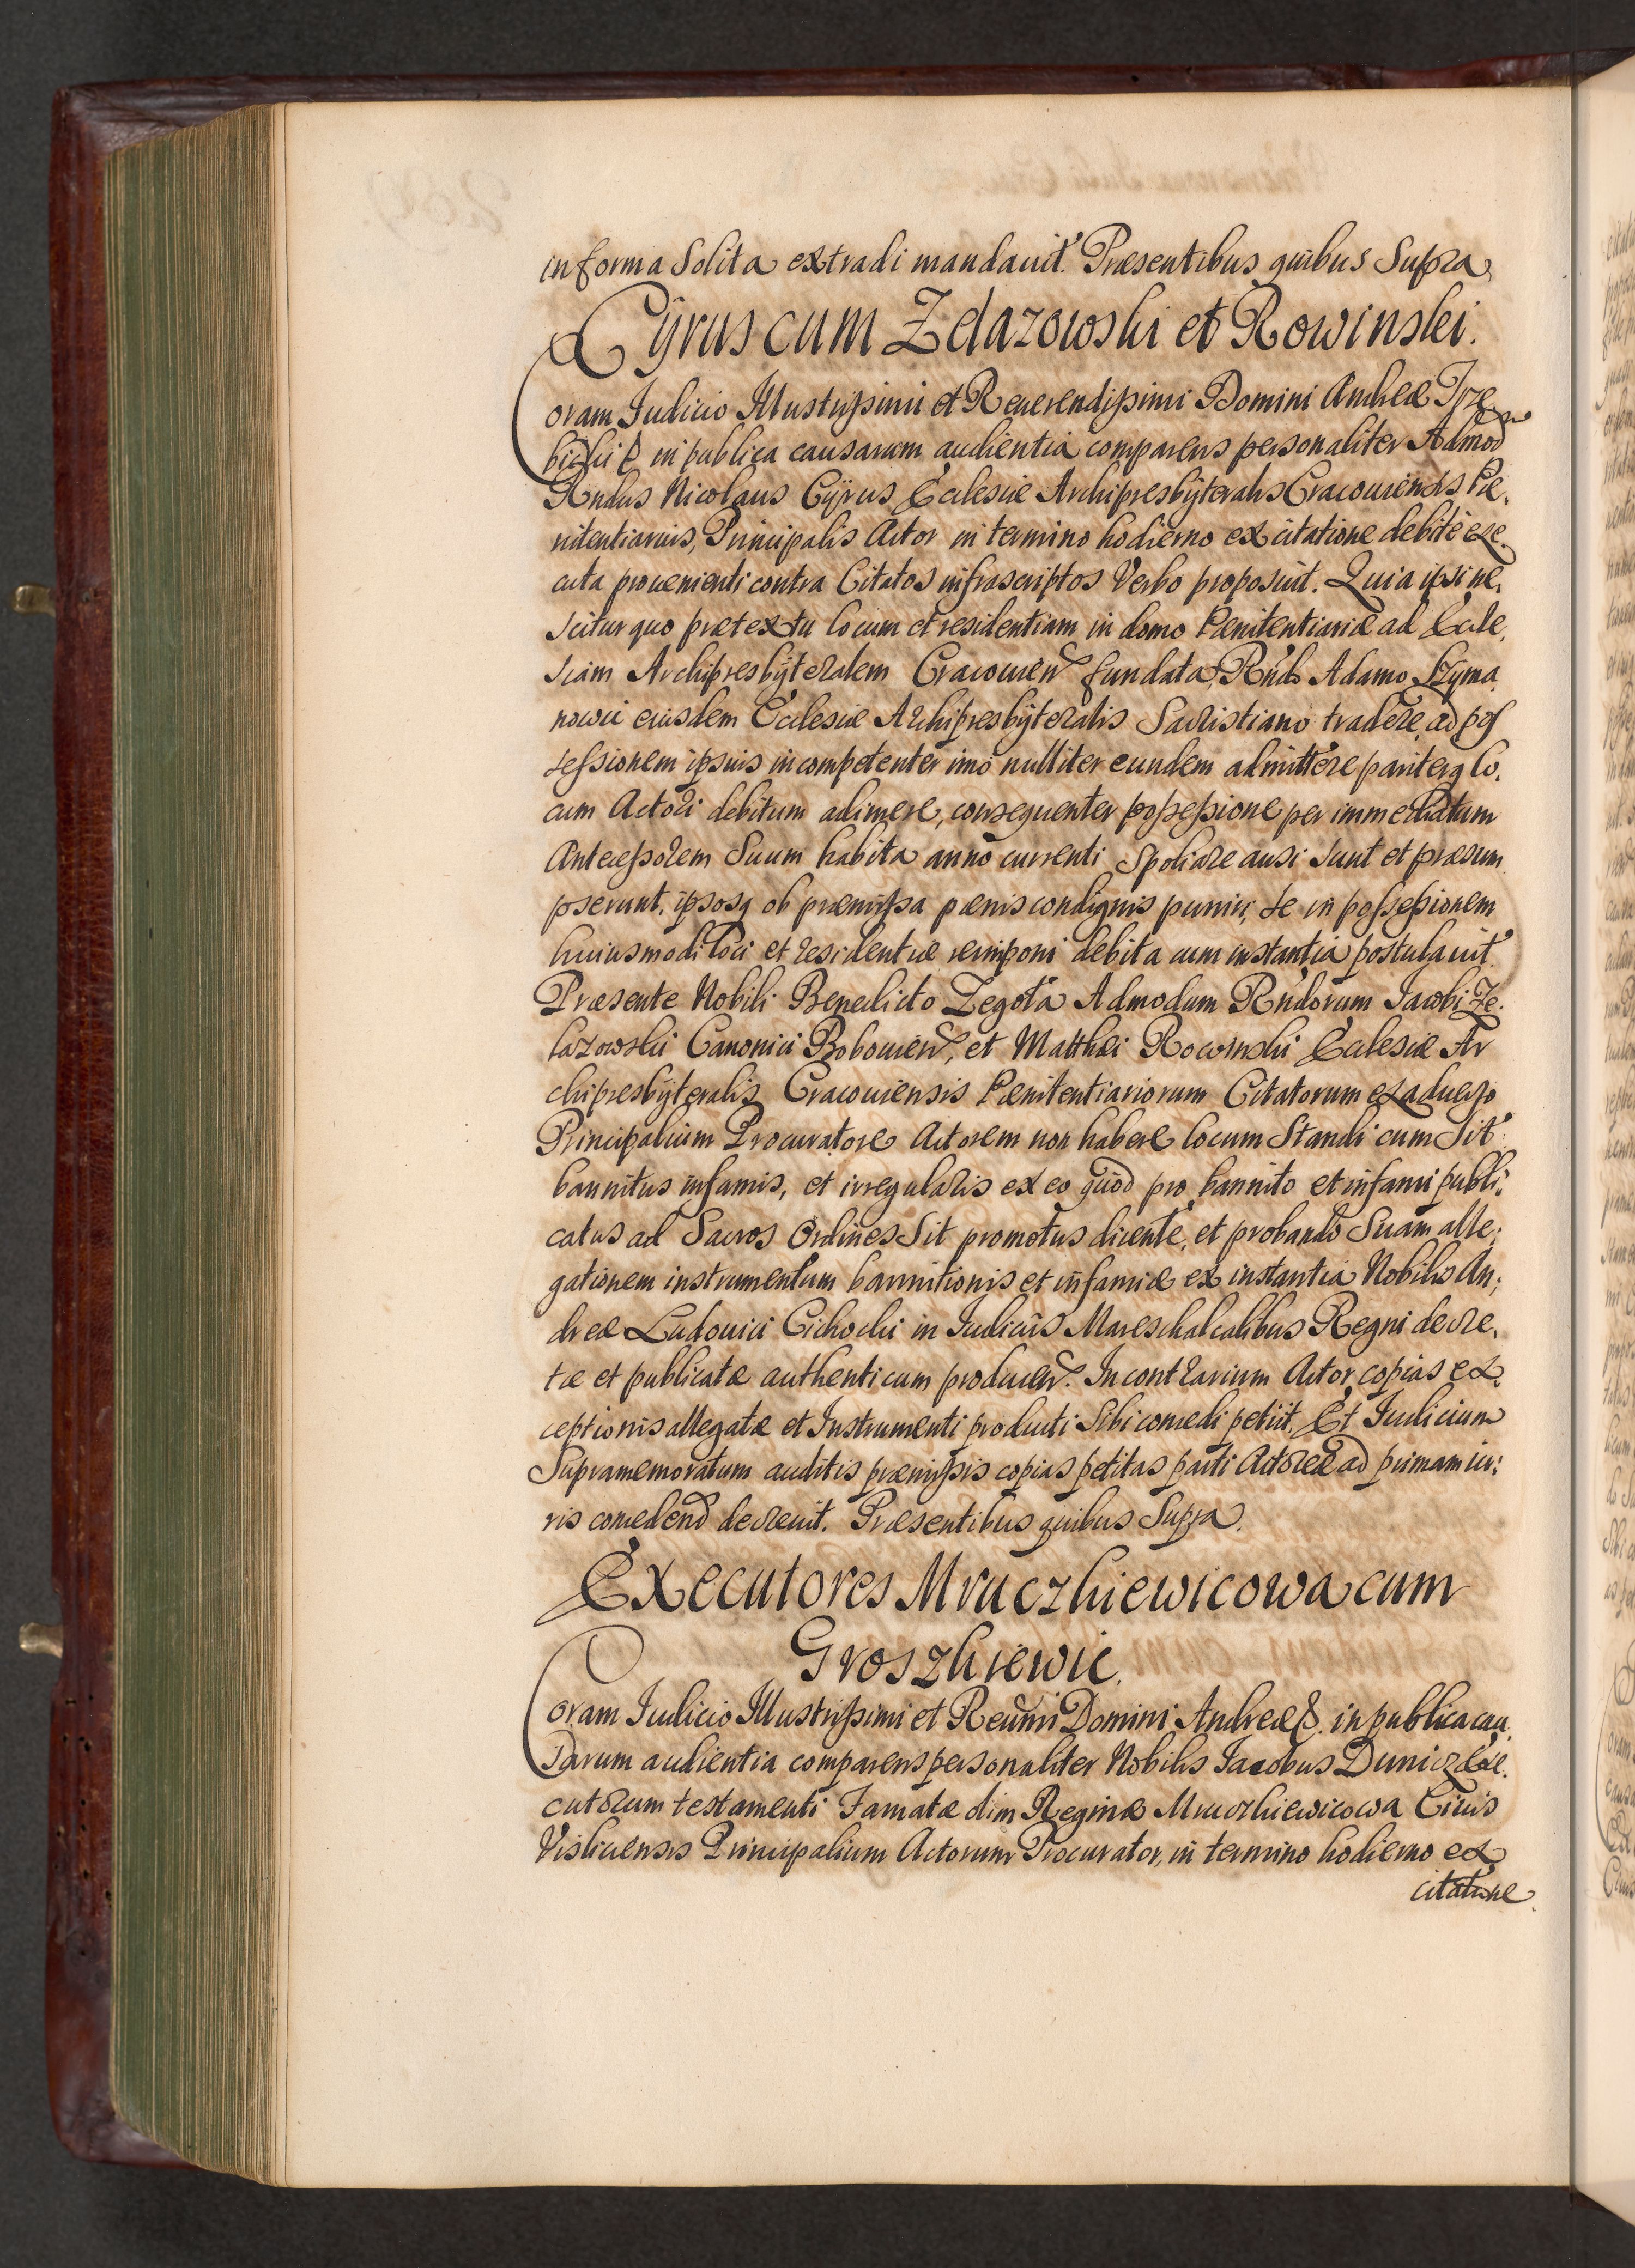 in forma Solita extradi mandauit. Præsentibus quibus Supra
Cÿrus cum Zelazowski et Rowinski.
Coram Iudicio Illustrissimi et Reuerendissimi Domini Andreæ Trze
bicki & in publica causarum audientia comparens personaliter Admodm
Rndus Nicolaus Cÿrus Ecclesiæ Archipresbÿteralis Cracouiensis Pæ,
nitentiarius, Principalis Actor in termino hodierno ex citatione debitè exe,
cuta prouenienti contra Citatos infrascriptos Verbo proposuit. Quia ipsi ne,
scitur quo prætextu locum et residentiam in domo Pænitentiariæ ad Eccle,
siam Archipresbÿteralem Cracouien fundata, Rndo Adamo Szyma,
nowic eiusdem Ecclesiæ Archipresbÿteralis Sacristiano tradere, ad pos
sessionem ipsius incompetenter imò nulliter eundem admittere pariterq lo,
cum Actori debitum adimere, consequenter possessione per immediatum
Antecessorem Suum habita anno currenti Spoliare ausi sunt et præsum
pserunt, ipsosq ob præmissa pænis condignis puniri, se in possessionem
huiusmodi loci et residentiæ reimponi debita cum instantia postulauit.
Præsente Nobili Benedicto Zegota Admodum Rndorum Iacobi Ze,
lazowski Canonici Bobouien, et Matthæi Rowinski Ecclesiæ Ar
chipresbÿteralis Cracouiensis Pænitentiariorum Citatorum ex aduerso
Principalium Procuratore Actorem non habere locum Standi cum Sit
bannitus infamis, et irregularis ex eo quod pro bannito et infami publi,
catus ad Sacros Ordines Sit promotus dicente, et probando Suam alle,
gationem instrumentum bannitionis et infamiæ ex instantia Nobilis An,
dreæ Ludouici Cichocki in Iudicijs Mareschalcalibus Regni decre,
tæ et publicatæ authenticum producen. In contrarium Actor copias ex,
ceptionis allegatæ et Instrumenti producti Sibi concedi petijt, Et Iudicium
Supramemoratum auditis præmissis copias petitas parti Actoreæ ad primam iu,
ris concedend decreuit. Præsentibus quibus Supra.
Executores Mruczkiewicowa cum
Groszkiewic.
Coram Iudicio Illustrissimi et Reumi Domini Andreæ &. in publica cau
sarum audientia comparens personaliter Nobilis Iacobus Dunicz Exe,
cutorum testamenti Famatæ olim Reginæ Mruczkiewicowa Ciuis
Visliciensis Principalium Actorum Procurator, in termino hodierno ex
citatione